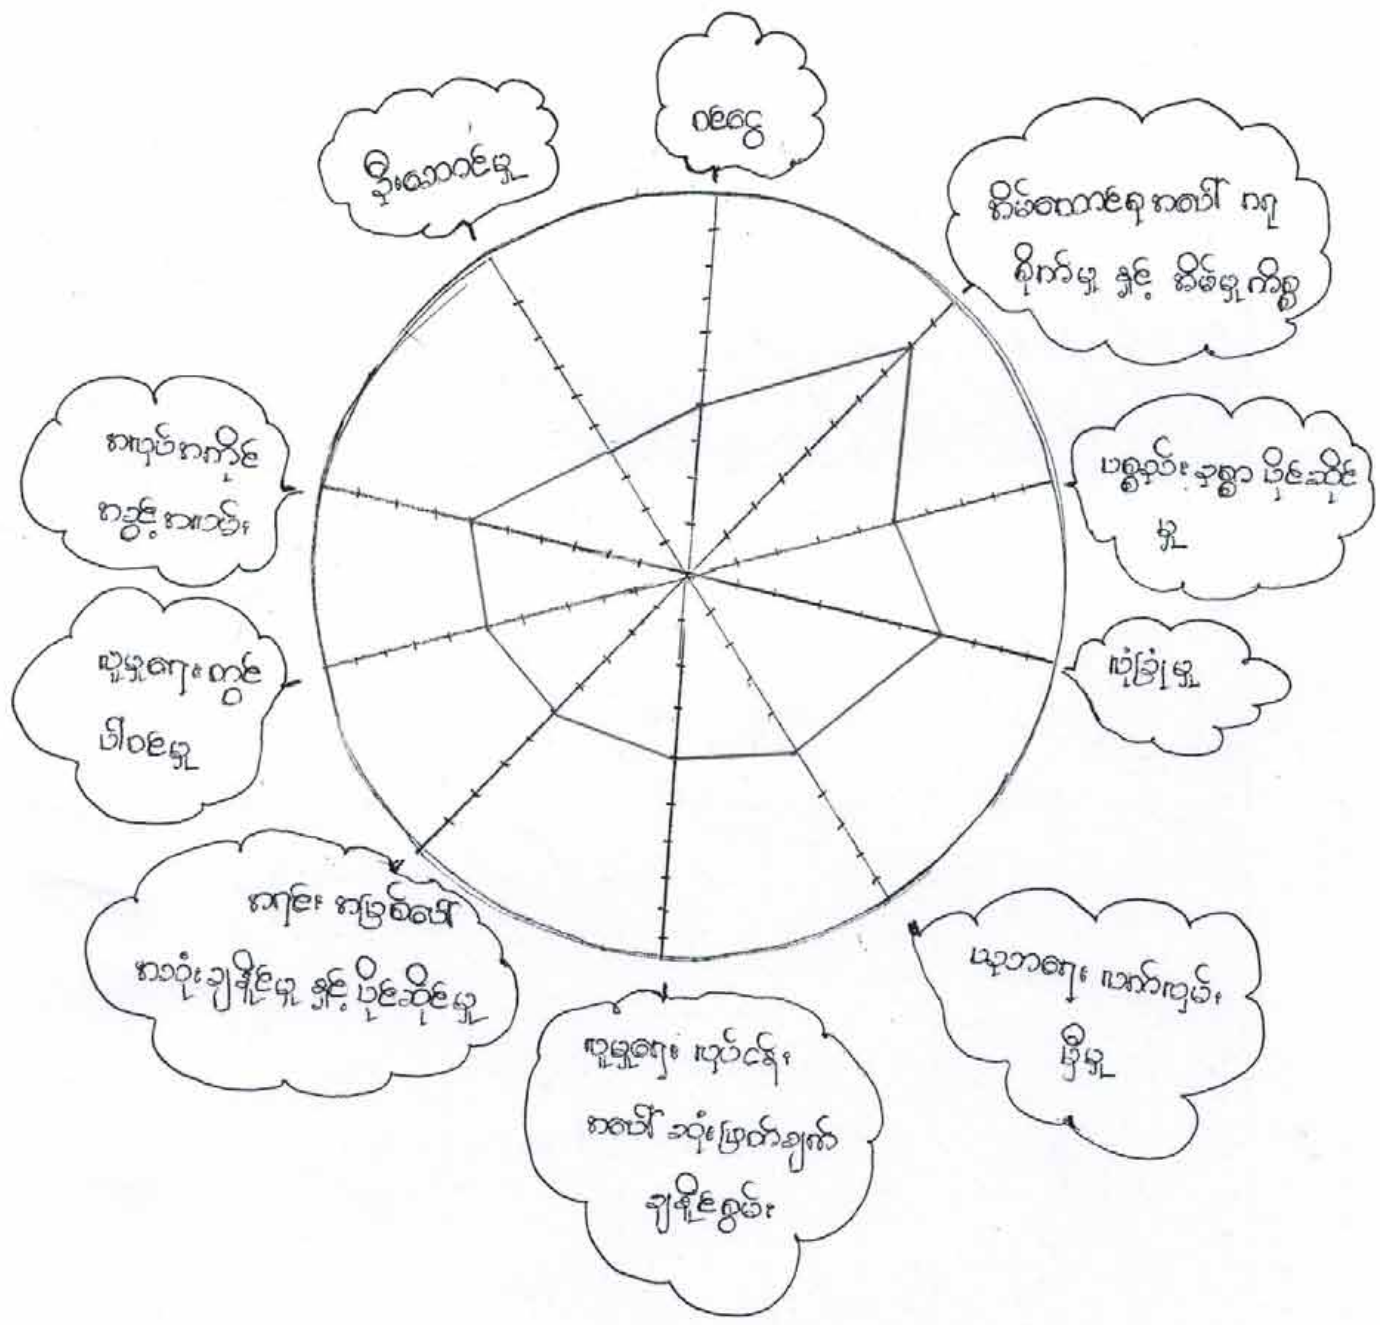 ဝင်ငွေ
အိမ်ထောင်ရေအပေါ် ဂရု
စိုက်မှု နှင့် အိမ်မှုကိစ္စ
ပစ္စည်းဥစ္စာ ပိုင်ဆိုင်
မှု
လုံခြုံမှု
ပညာရေး လက်လှမ်း
မှီမှု
လူမှုရေး လုပ်ငန်း
အပေါ် ဆုံးဖြတ်ချက်
ချနိုင်စွမ်း
အရင်း အမြစ်ပေါ်
အသုံးချနိုင်မှု နှင့် ပိုင်ဆိုင်မှု
လူမှုရေးတွင်
ပါဝင်မှု
အလုပ်အကိုင်
အခွင့်အလမ်း
ဦးဆောင်မှု